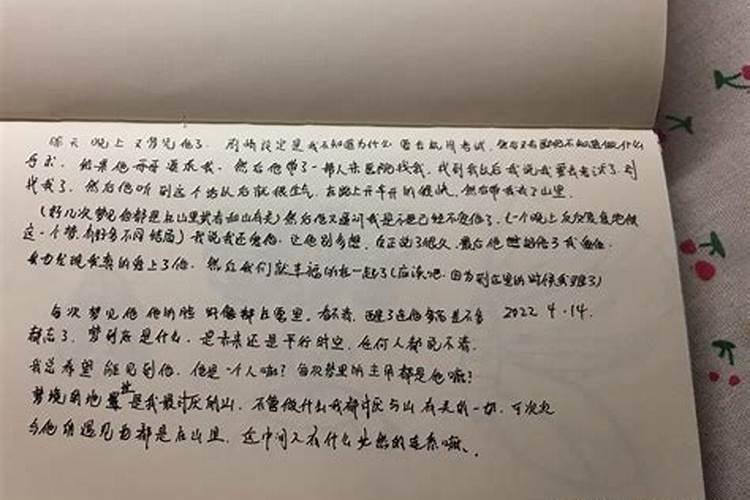 昨天晚上又梦见他了. 剧情设定是我不知道为什么要去做考试, 然后又去医院不知道做什么
手术. 结果他哥哥要杀我. 然后他带了一帮人来医院找我, 找到我以后我说我要去考试了, 别
找我了. 然后他听到这个话以后就很生气, 在路上开车开的很快, 然后带我去了山里.
(好几次梦见他都是在山里或者和山有关) 然后他又逼问我是不是已经不爱他了, (一个晚上反反复复地做
这一个梦, 有好多不同结局) 我说我还爱他, 让他别多想, 在正说了很久, 最后他 他 我
发现我真的爱上了他. 然后我们就幸福的在一起了 (应该吧. 因为到这里的时候我醒了)
每次梦见他 他的脸 好像都在雾里. 看不清, 醒了连他多高是不多 2022 4.14.
都忘了, 梦到底是什么, 是未来还是平行时空, 任何人都说不清.
我总希望 能见到他, 他是一个人嘛? 每次梦里的主角都是他嘛?
梦境因地 世 是我最讨厌的山, 不管做什么我都讨厌与山有关的一切. 可次次
与他相遇见面都是在山里. 这中间又有什么必然的连系嘛、.